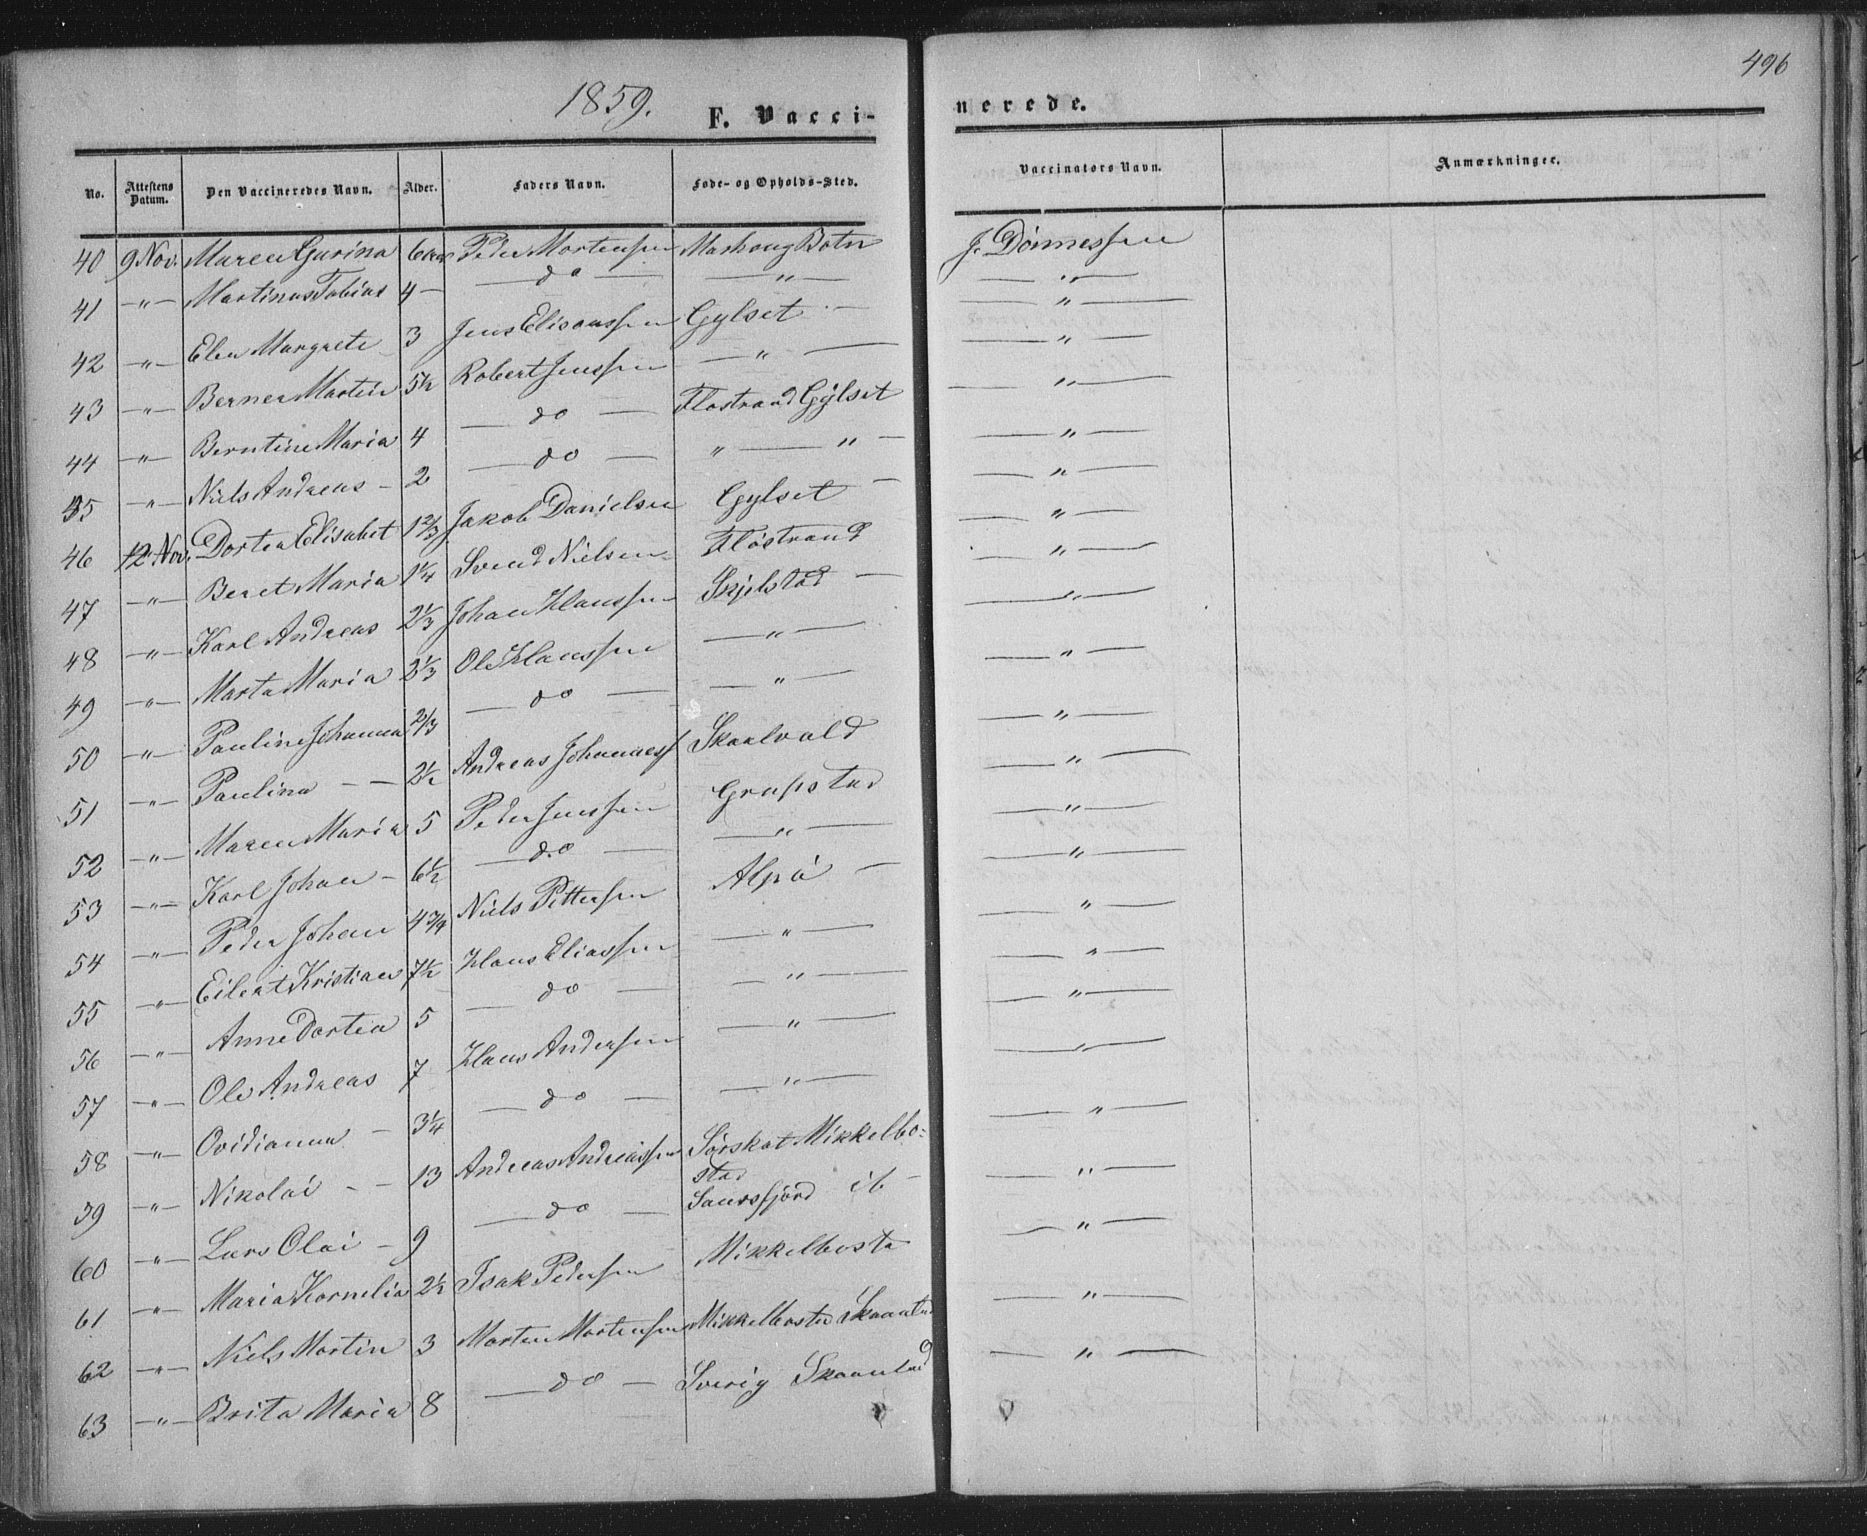 496
1859.
F. Vacci-
nerede.
No. Attestens Datum. Den Vaccineredes Navn. Alder. Faders Navn. Føde- og Opholds-Sted. Vaccinators Navn. Anmærkninger.
40 9 Nov. Maren Gurina 6 Peder Mortensen Botn J. Dönnessen
41 —"— Martinus Tobias 4 — — do — —"— —"—
42 —"— Elen Margrete 3 Jens Eliseussen Gylset — —"—
43 —"— Berner Martin 5½ Robert Jenssen —"— —"—
44 —"— Berntine Maria 4 — do — Flostrand Gylset —"—
45 —"— Niels Andreas — 2 — do — " — " — —"—
46 12 Nov. Dortea Elisabet 1⅔ Jakob Danielsen Gylset — —"—
47 —"— Beret Maria 1¼ Svend Nielsen Flöstrand —"—
48 —"— Karl Andreas 2⅓ Johan Hanssen Skjelstad — —"—
49 —"— Marta Maria 2⅓ Ole Hanssen —"— —"—
50 —"— Pauline Johanna ⅔ — do — —"— —"—
51 —"— Paulina — — 2½ Andreas Johanness Skaalvald —"—
52 —"— Maren Maria 5 Peder Jenssen Grapstad —"—
53 —"— Karl Johan — 6½ — do — —"— —"—
54 —"— Peder Johan 4¾ Niels Pettersen Alpö — —"—
55 —"— Eilert Kristian 7½ Hans Eliassen —"— —"—
56 —"— Anne Dortea 5 — do — —"— —"—
57 —"— Ole Andreas 7 Hans Andersen —"— —"—
58 —"— Ovidianna — 3¼ — do — —"— —"—
59 —"— Nikolai — — 13 Andreas Andreassen Sörskot Mikkelbo-
stad —"—
60 —"— Lars Olai — 9 — do — —"—
61 —"— Maria Kornelia 2½ Isak Pedersen Mikkelbosta —"—
62 —"— Niels Martin 3 Morten Mortensen Mikkelbosta Skaanlad —"—
63 —"— Brita Maria 8 — do — Sverig Skaanlad —"—